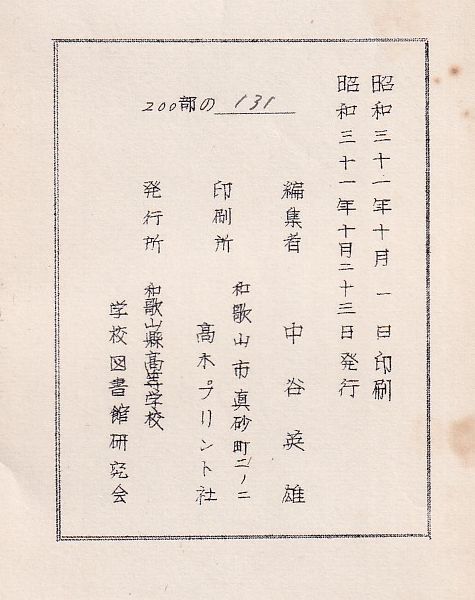 昭和三十一年十月一日印刷
昭和三十一年十月二十三日発行
200部の 131
編集者 中谷英雄
印刷所 和歌山市真砂町二ノ二
高木プリント社
発行所 和歌山縣高等学校
学校図書館研究会